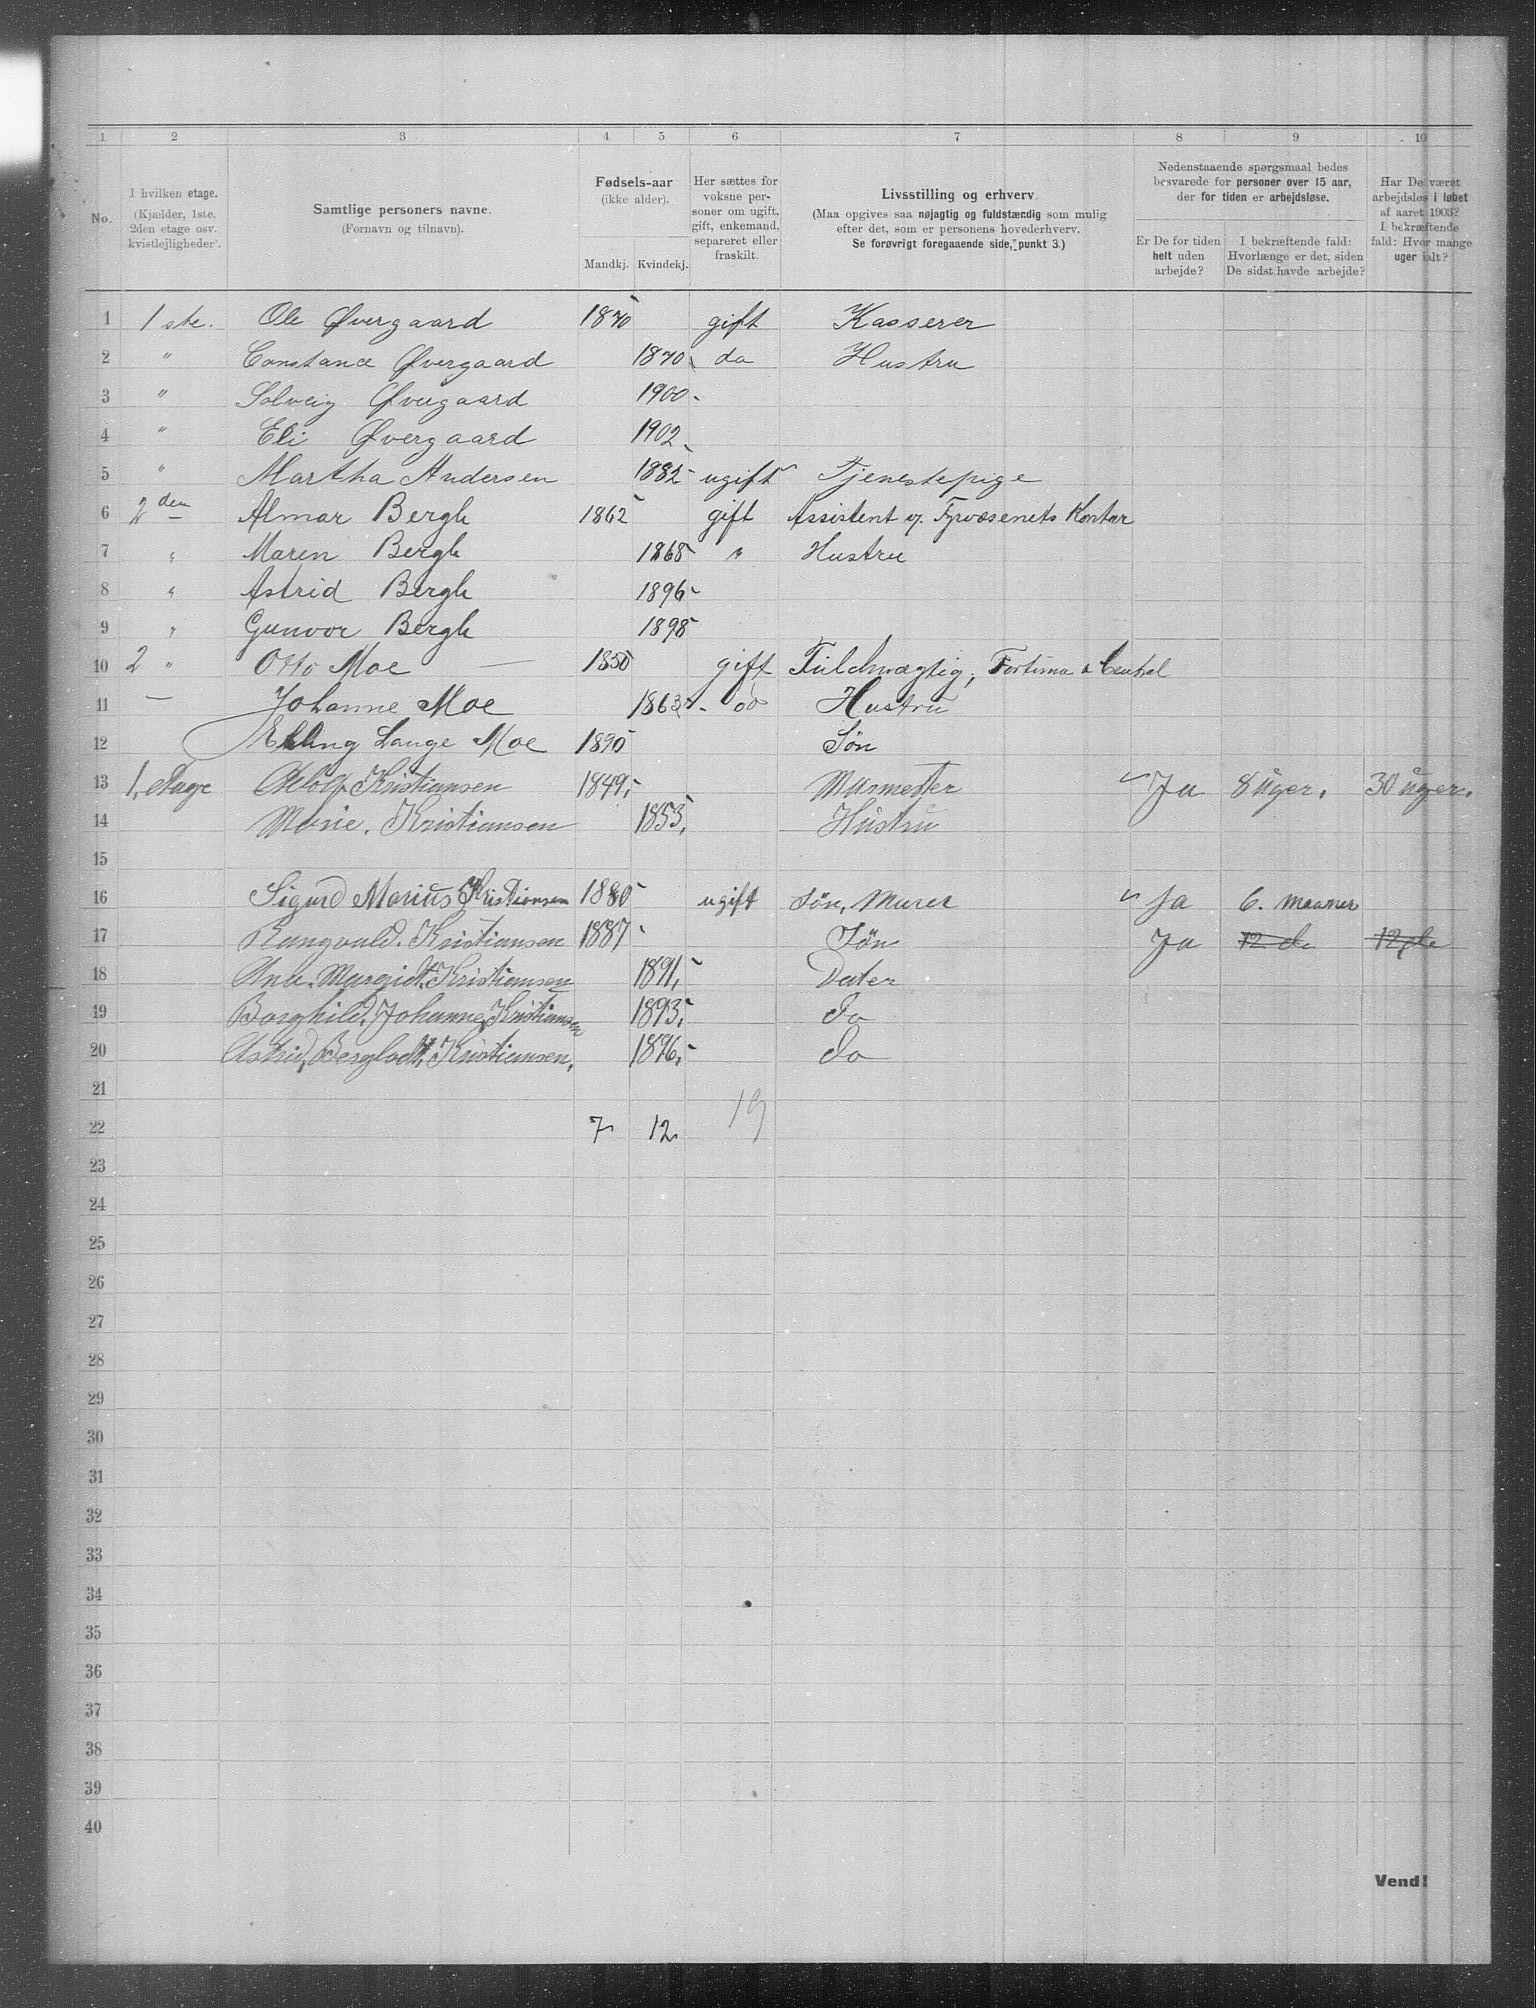 1 2 3 4 5 6 7 8 9 10
No.
I hvilken etage.
(Kjælder, 1ste,
2den etage osv.
kvistlejligheder).
Samtlige personers navne.
(Fornavn og tilnavn).
Fødsels-aar
(ikke alder).
Mandkj. Kvindekj.
Her sættes for
voksne per-
soner om ugift,
gift, enkemand,
separeret eller
fraskilt.
Livsstilling og erhverv
(Maa opgives saa nøjagtig og fuldstændig som mulig
efter det, som er personens hovederhverv.
Se forøvrigt foregaaende side, punkt 3.)
Nedenstaaende spørgsmaal bedes
besvarede for personer over 15 aar,
der for tiden er arbejdsløse.
Er De for tiden
helt uden
arbejde?
I bekræftende fald:
Hvorlænge er det, siden
De sidst havde arbejde?
Har De været
arbejdsløs i løbet
af aaret 1903?
I bekræftende
fald: Hvor mange
uger ialt?
1 1ste. Ole Øvergaard 1870 gift Kasserer
2 " Constance Øvergaard 1870 do Hustru
3 " Solveig Øvergaard 1900
4 " Eli Øvergaard 1902
5 " Martha Andersen 1882 ugift Tjenestepige
6 2den Almar Bergh 1862 gift Assistent v. Fyrvæsenets Kontor
7 " Maren Bergh 1868 " Hustru
8 " Astrid Bergh 1896
9 " Gunvor Bergh 1898
10 2 " Otto Moe — 1850 gift Fuldmægtig, Fortuna & Central
11 — Johanne Moe 1863 do Hustru
12 Erling Lange Moe 1890 Søn
13 1. Etage Adolf Kristiansen 1849, Murmester Ja 8 uger. 30 uger.
14 Marie. Kristiansen 1853, Hustru
15
16 Sigurd Marius Kristiansen 1880 ugift Søn, Murer Ja 6. maaner
17 Rangvald. Kristiansen 1887 Søn Ja 12 do 12 do
18 Ana. Margidt. Kristiansen 1891, Dater
19 Borghild. Johanne, Kristiansen 1893, do
20 Astrid, Bergliodt, Kristiansen, 1896, do
21
22 7 12 19
23
24
25
26
27
28
29
30
31
32
33
34
35
36
37
38
39
40
Vend!